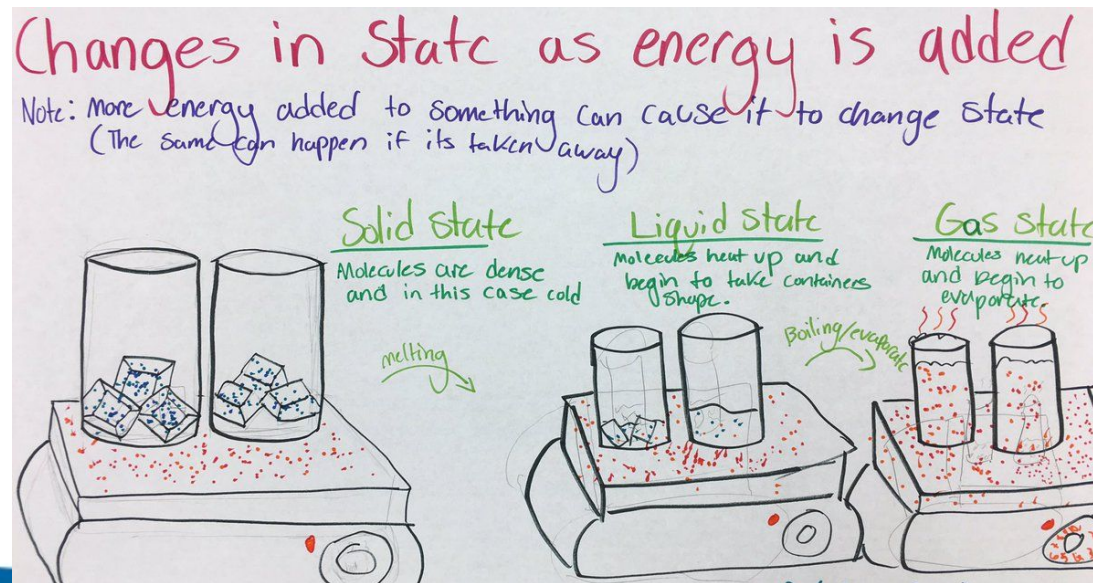 Changes in State as energy is added
Note: More energy added to something can cause it to change state
(The same can happen if its taken away)
Solid State
Molecules are dense
and in this case cold
melting
Liquid State
Molecules heat up and
begin to take containers
shape.
Boiling/evaporate
Gas State
Molecules heat up
and begin to
evaporate.